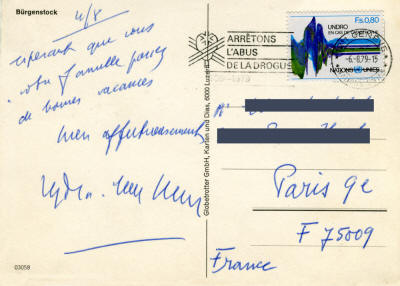 Bürgenstock
4/8
espérant que vous
votre famille passez
de bonnes vacances
bien affectueusement
03058
Globetrotter GmbH, Karten und Dias, 6000 Luzern
ARRÊTONS
L'ABUS
DE LA DROGUE
Fs.0,80
UNDRO
NATIONS UNIES
-6.-8.79-15
Paris 9e
F 75009
France